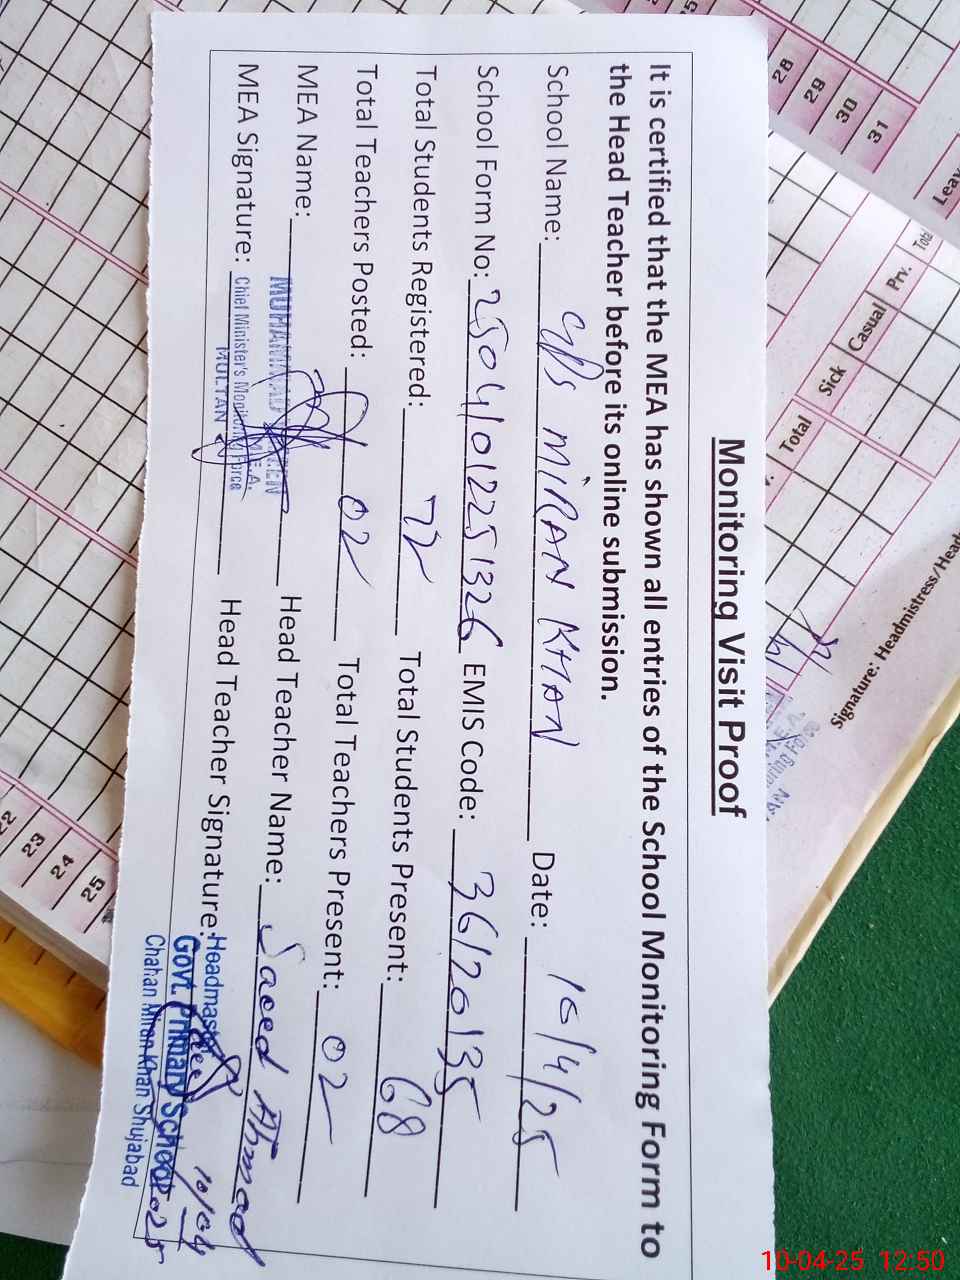 Monitoring Visit Proof
It is certified that the MEA has shown all entries of the School Monitoring Form to
the Head Teacher before its online submission.
School Name: G/P/S MIRAN KHAN Date: 10/4/25
School Form No: 250410122251326 EMIS Code: 36120135
Total Students Registered: 72 Total Students Present: 68
Total Teachers Posted: 02 Total Teachers Present: 02
MEA Name: MUHAMMAD Head Teacher Name: Saeed Ahmad
MEA Signature: Chief Minister's Monitoring Force Head Teacher Signature: Headmaster
MULTAN
Govt. Primary School
Chahan Miran Khan Shujabad
10/04
2025
28
29
30
31
Leav
Total
Prv.
Casual
Sick
Total
Signature: Headmistress/Head
22
23
24
25
10-04-25 12:50